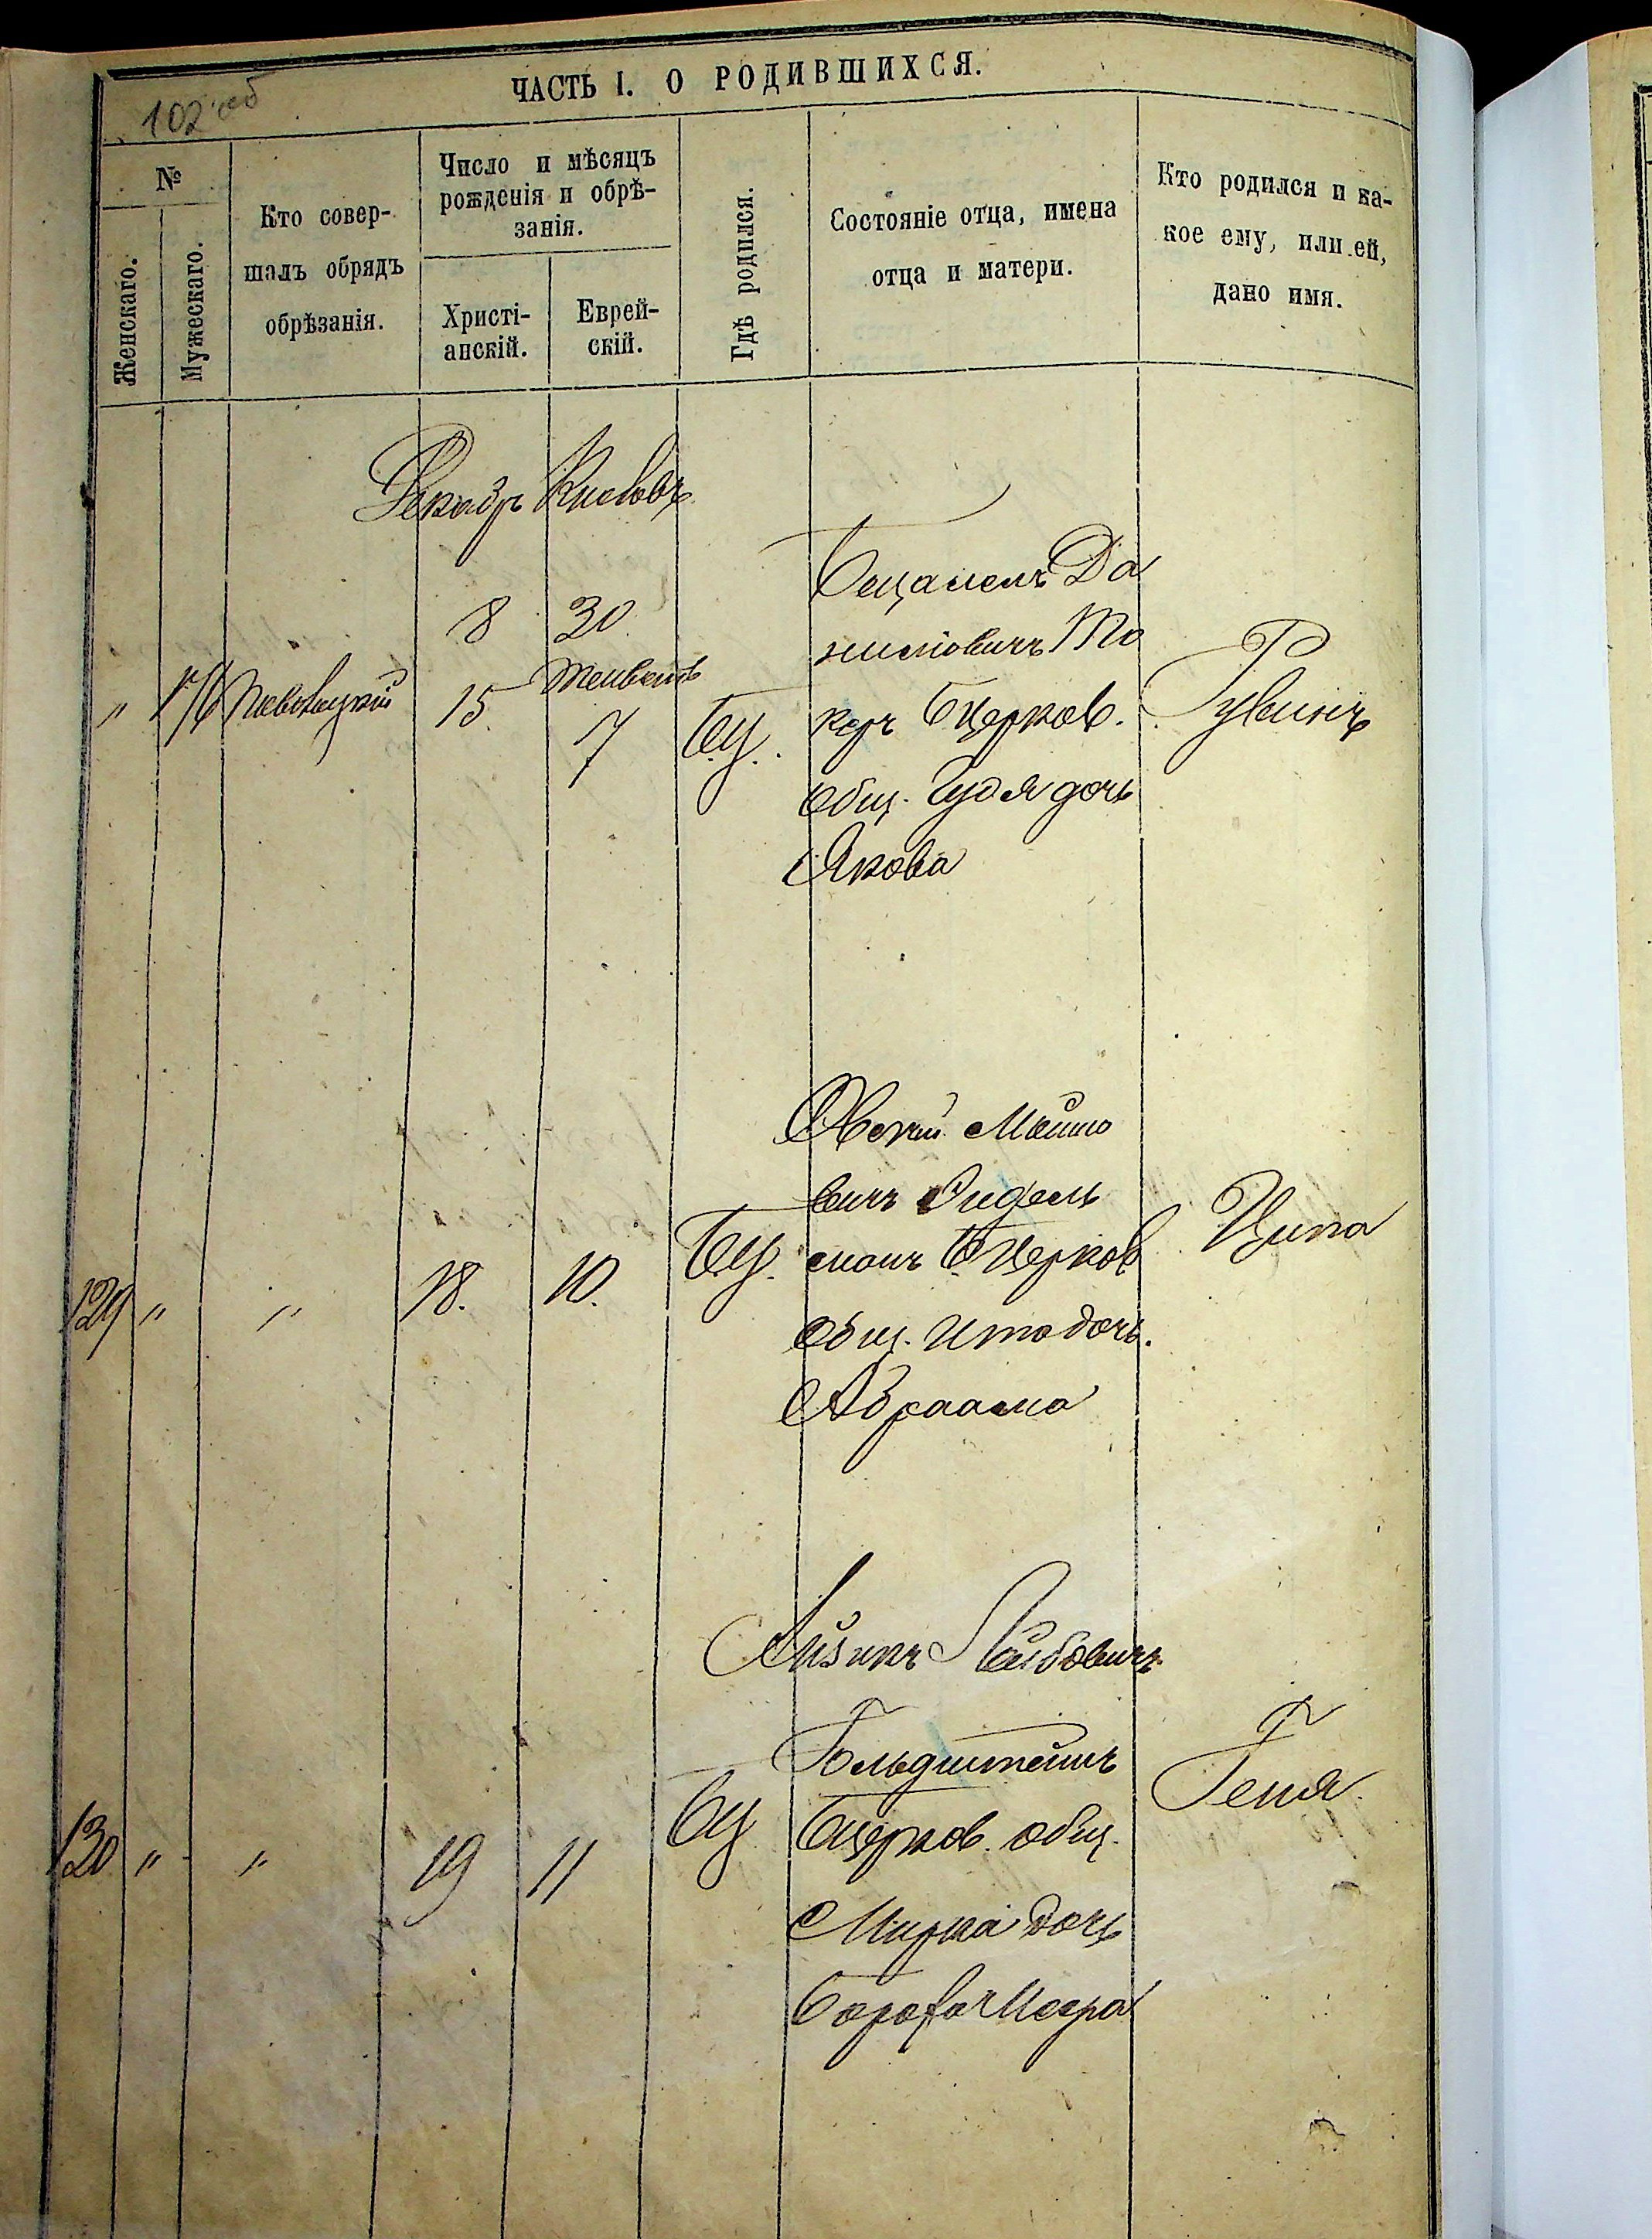 102 об
ЧАСТЬ I. О РОДИВШИХСЯ.
№
Женскаго.
Мужескаго.
Кто совер-
шалъ обрядъ
обрѣзанія.
Число и мѣсяцъ
рожденія и обрѣ-
занія.
Христі-
анскій.
Еврей-
скій.
Гдѣ родился.
Состояніе отца, имена
отца и матери.
Кто родился и ка-
кое ему, или ей,
дано имя.
Декабр Кислевъ
8 30
Тейвесъ
" 176
15 7
Б.Ц.
Бецалель Да
ниловичъ То
керъ БЦерков.
Общ. Гудя дочь
Якова
Рувинъ
129 " " 18. 10. Б.Ц.
Овсій Мошко
вичъ Фидель
манъ БЦерков
Общ. Ита дочь.
Абраама
Ципа
130 " " 19 11 БЦ
Айзикъ Лейбовичъ
Гольдштейнъ
БЦерков. общ.
Мирка дочь
Геня.